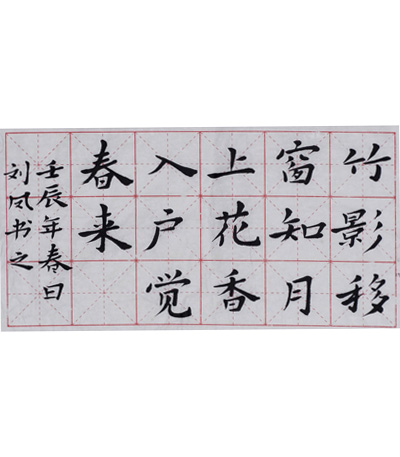 竹影移
窗知月
上花香
入户觉
春来
壬辰年春日
刘凤书之